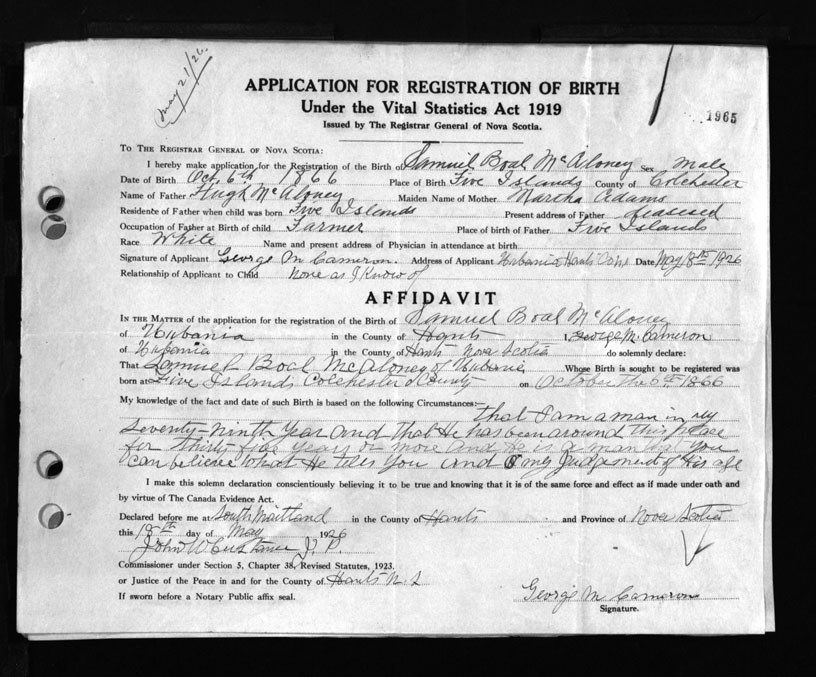 May 21/26.
APPLICATION FOR REGISTRATION OF BIRTH
Under the Vital Statistics Act 1919
Issued by The Registrar General of Nova Scotia.
1965
TO THE REGISTRAR GENERAL OF NOVA SCOTIA:
I hereby make application for the Registration of the Birth of Samuel Boal McAloney Sex Male
Date of Birth Oct. 6th 1866 Place of Birth Five Islands County of Colchester
Name of Father Hugh McAloney Maiden Name of Mother Martha Adams
Residente of Father when child was born Five Islands Present address of Father deacesed
Occupation of Father at Birth of child Farmer Place of birth of Father Five Islands
Race White Name and present address of Physician in attendance at birth
Signature of Applicant George M Cameron. Address of Applicant Urbania Hants Date May 18th 1926
Relationship of Applicant to Child None as I Know of
AFFIDAVIT
IN THE MATTER of the application for the registration of the Birth of Samuel Boal McAloney
of Urbania in the County of Hants George M. Cameron
of Urbania in the County of Hants Nova Scotia do solemnly declare:
That Samuel Boal McAloney of Urbania Whose Birth is sought to be registered was
born at Five Islands Colchester County on October the 6th 1866
My knowledge of the fact and date of such Birth is based on the following Circumstances:— that I am a man in my
Seventy-ninth Year and that He has been around this place
for thirty five Years or more and He is a man as You
can believe what He tels You and my Judgement of His age
I make this solemn declaration conscientiously believing it to be true and knowing that it is of the same force and effect as if made under oath and
by virtue of The Canada Evidence Act.
Declared before me at South Maitland in the County of Hants and Province of Nova Scotia
this 18th day of May 1926
John W Custance J. P.
Commissioner under Section 5, Chapter 38, Revised Statutes, 1923.
or Justice of the Peace in and for the County of Hants N. S
If sworn before a Notary Public affix seal.
George M Cameron
Signature.